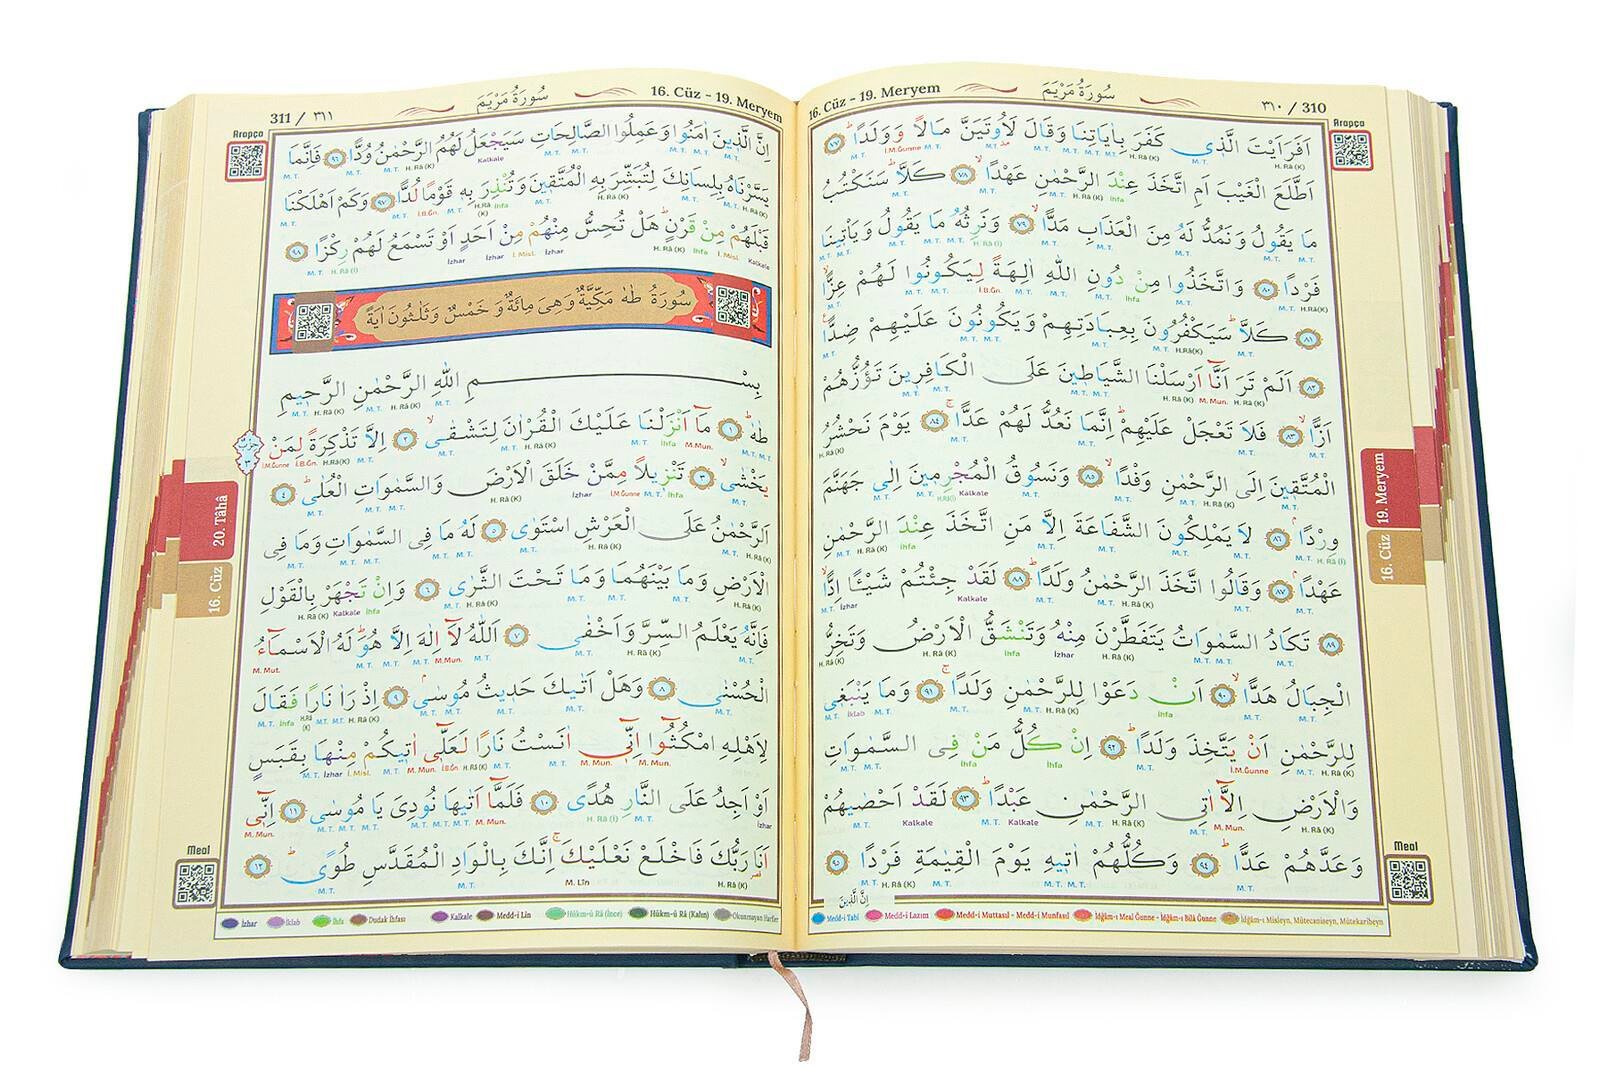 16. Cüz - 19. Meryem
سُورَةُ مَرْيَمَ
٣١٠ / 310
Arapça
اَفَرَاَيْتَ الَّذ۪ي كَفَرَ بِاٰيَاتِنَا وَقَالَ لَاُو۫تَيَنَّ مَالًا وَوَلَدًاۜ ﴿٧٧﴾
اَطَّلَعَ الْغَيْبَ اَمِ اتَّخَذَ عِنْدَ الرَّحْمٰنِ عَهْدًاۙ ﴿٧٨﴾ كَلَّاۜ سَنَكْتُبُ
مَا يَقُولُ وَنَمُدُّ لَهُ مِنَ الْعَذَابِ مَدًّاۙ ﴿٧٩﴾ وَنَرِثُهُ مَا يَقُولُ وَيَأْت۪ينَا
فَرْدًا ﴿٨٠﴾ وَاتَّخَذُوا مِنْ دُونِ اللّٰهِ اٰلِهَةً لِيَكُونُوا لَهُمْ عِزًّاۙ
﴿٨١﴾ كَلَّاۜ سَيَكْفُرُونَ بِعِبَادَتِهِمْ وَيَكُونُونَ عَلَيْهِمْ ضِدًّا۟
﴿٨٢﴾ اَلَمْ تَرَ اَنَّٓا اَرْسَلْنَا الشَّيَاط۪ينَ عَلَى الْكَافِر۪ينَ تَؤُزُّهُمْ
اَزًّاۙ ﴿٨٣﴾ فَلَا تَعْجَلْ عَلَيْهِمْۜ اِنَّمَا نَعُدُّ لَهُمْ عَدًّاۚ ﴿٨٤﴾ يَوْمَ نَحْشُرُ
الْمُتَّق۪ينَ اِلَى الرَّحْمٰنِ وَفْدًاۙ ﴿٨٥﴾ وَنَسُوقُ الْمُجْرِم۪ينَ اِلٰى جَهَنَّمَ
وِرْدًاۢ ﴿٨٦﴾ لَا يَمْلِكُونَ الشَّفَاعَةَ اِلَّا مَنِ اتَّخَذَ عِنْدَ الرَّحْمٰنِ
عَهْدًاۢ ﴿٨٧﴾ وَقَالُوا اتَّخَذَ الرَّحْمٰنُ وَلَدًاۜ ﴿٨٨﴾ لَقَدْ جِئْتُمْ شَيْـًٔا اِدًّاۙ
﴿٨٩﴾ تَكَادُ السَّمٰوَاتُ يَتَفَطَّرْنَ مِنْهُ وَتَنْشَقُّ الْاَرْضُ وَتَخِرُّ
الْجِبَالُ هَدًّاۙ ﴿٩٠﴾ اَنْ دَعَوْا لِلرَّحْمٰنِ وَلَدًاۚ ﴿٩١﴾ وَمَا يَنْبَغ۪ي
لِلرَّحْمٰنِ اَنْ يَتَّخِذَ وَلَدًاۜ ﴿٩٢﴾ اِنْ كُلُّ مَنْ فِي السَّمٰوَاتِ
وَالْاَرْضِ اِلَّٓا اٰتِي الرَّحْمٰنِ عَبْدًاۜ ﴿٩٣﴾ لَقَدْ اَحْصٰيهُمْ
وَعَدَّهُمْ عَدًّاۜ ﴿٩٤﴾ وَكُلُّهُمْ اٰت۪يهِ يَوْمَ الْقِيٰمَةِ فَرْدًا ﴿٩٥﴾
اِنَّ الَّذ۪ينَ
19. Meryem
16. Cüz
Meal
Medd-i Tabî Medd-i Lazım Medd-i Muttasıl - Medd-i Munfasıl İdğâm-ı Meal Ğunne - İdğâm-ı Bilâ Ğunne İdğâm-ı Misleyn, Mütecaniseyn, Mütekaribeyn
311 / ٣١١
سُورَةُ مَرْيَمَ
16. Cüz - 19. Meryem
Arapça
اِنَّ الَّذ۪ينَ اٰمَنُوا وَعَمِلُوا الصَّالِحَاتِ سَيَجْعَلُ لَهُمُ الرَّحْمٰنُ وُدًّا ﴿٩٦﴾ فَاِنَّمَا
يَسَّرْنَاهُ بِلِسَانِكَ لِتُبَشِّرَ بِهِ الْمُتَّق۪ينَ وَتُنْذِرَ بِه۪ قَوْمًا لُدًّا ﴿٩٧﴾ وَكَمْ اَهْلَكْنَا
قَبْلَهُمْ مِنْ قَرْنٍۜ هَلْ تُحِسُّ مِنْهُمْ مِنْ اَحَدٍ اَوْ تَسْمَعُ لَهُمْ رِكْزًا ﴿٩٨﴾
سُورَةُ طٰهٰ مَكِّيَّةٌ وَهِيَ مِائَةٌ وَ خَمْسٌ وَثَلٰثُونَ اٰيَةً
بِسْمِ اللّٰهِ الرَّحْمٰنِ الرَّح۪يمِ
طٰهٰۜ ﴿١﴾ مَٓا اَنْزَلْنَا عَلَيْكَ الْقُرْاٰنَ لِتَشْقٰىۙ ﴿٢﴾ اِلَّا تَذْكِرَةً لِمَنْ
يَخْشٰىۙ ﴿٣﴾ تَنْز۪يلًا مِمَّنْ خَلَقَ الْاَرْضَ وَالسَّمٰوَاتِ الْعُلٰىۜ ﴿٤﴾
اَلرَّحْمٰنُ عَلَى الْعَرْشِ اسْتَوٰى ﴿٥﴾ لَهُ مَا فِي السَّمٰوَاتِ وَمَا فِي
الْاَرْضِ وَمَا بَيْنَهُمَا وَمَا تَحْتَ الثَّرٰى ﴿٦﴾ وَاِنْ تَجْهَرْ بِالْقَوْلِ
فَاِنَّهُ يَعْلَمُ السِّرَّ وَاَخْفٰى ﴿٧﴾ اَللّٰهُ لَٓا اِلٰهَ اِلَّا هُوَۜ لَهُ الْاَسْمَٓاءُ
الْحُسْنٰى ﴿٨﴾ وَهَلْ اَتٰيكَ حَد۪يثُ مُوسٰىۢ ﴿٩﴾ اِذْ رَاٰ نَارًا فَقَالَ
لِاَهْلِهِ امْكُثُٓوا اِنّ۪ٓي اٰنَسْتُ نَارًا لَعَلّ۪ٓي اٰت۪يكُمْ مِنْهَا بِقَبَسٍ
اَوْ اَجِدُ عَلَى النَّارِ هُدًى ﴿١٠﴾ فَلَمَّٓا اَتٰيهَا نُودِيَ يَا مُوسٰى ﴿١١﴾ اِنّ۪ٓي
اَنَا۬ رَبُّكَ فَاخْلَعْ نَعْلَيْكَۚ اِنَّكَ بِالْوَادِ الْمُقَدَّسِ طُوًىۜ ﴿١٢﴾
20. Tâhâ
16. Cüz
Meal
İzhar İklab İhfa Dudak İhfası Kalkale Medd-i Lin Hükm-ü Râ (İnce) Hükm-ü Râ (Kalın) Okunmayan Harfler